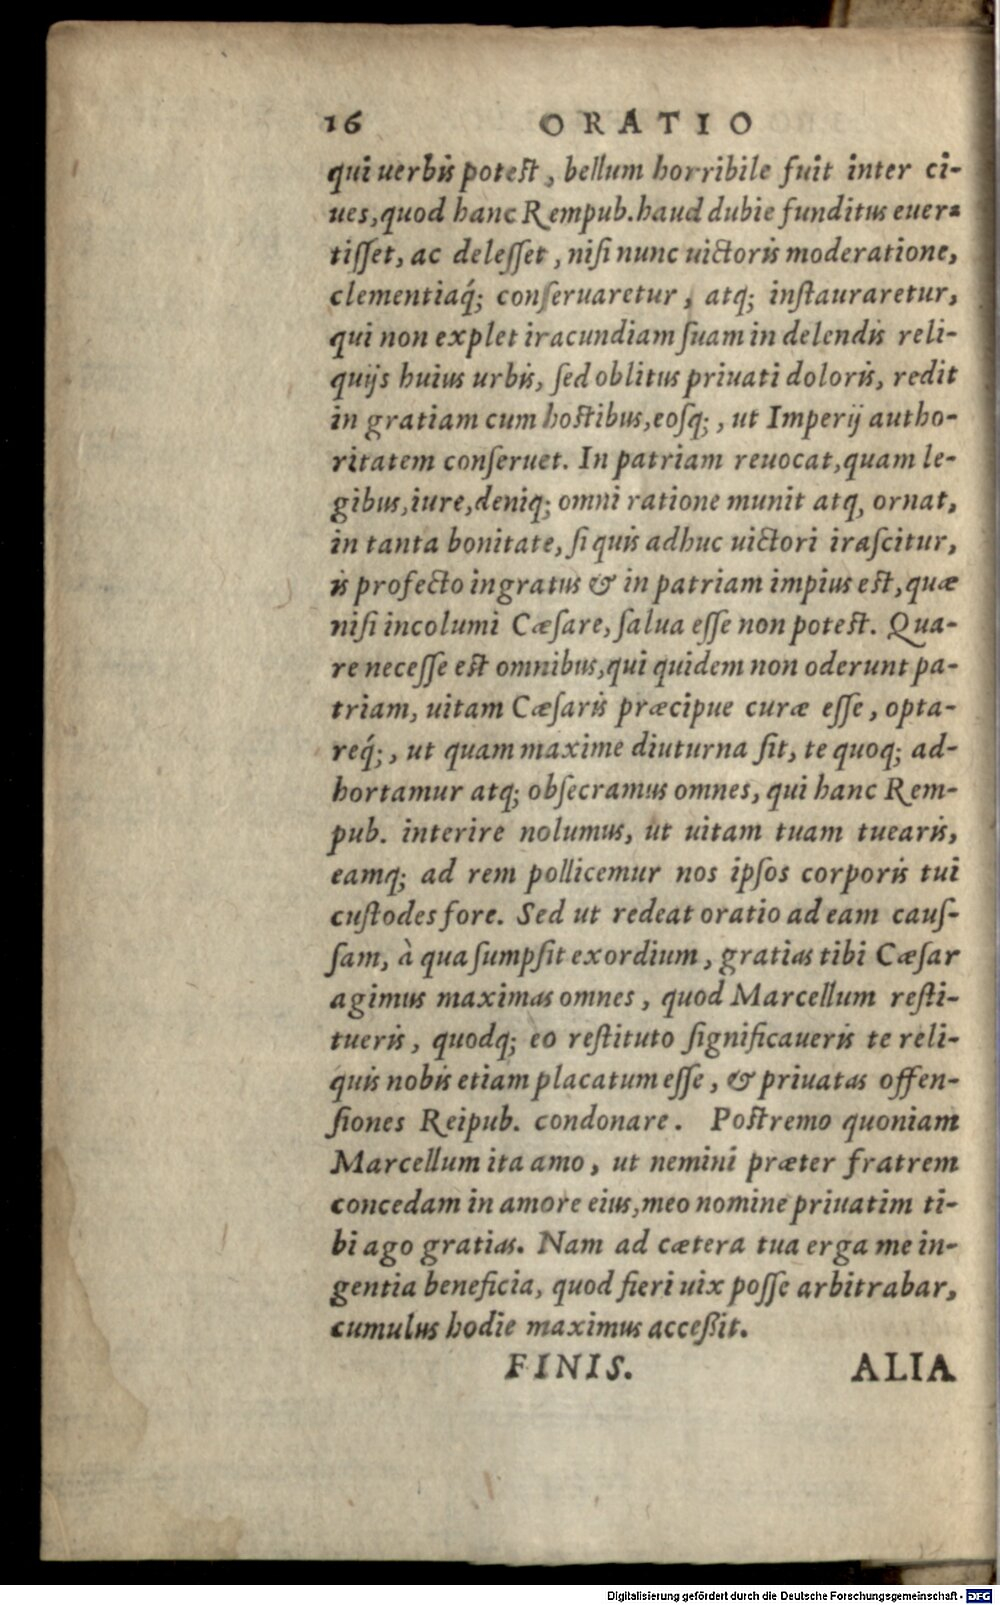 16 ORATIO
qui uerbis potest, bellum horribile fuit inter ci-
ues, quod hanc Rempub. haud dubie funditus euer=
tisset, ac delesset, nisi nunc uictoris moderatione,
clementiaq́; conseruaretur, atq; instauraretur,
qui non explet iracundiam suam in delendis reli-
quijs huius urbis, sed oblitus priuati doloris, redit
in gratiam cum hostibus, eosq;, ut Imperij autho-
ritatem conseruet. In patriam reuocat, quam le-
gibus, iure, deniq; omni ratione munit atq, ornat,
in tanta bonitate, si quis adhuc uictori irascitur,
is profecto ingratus & in patriam impius est, quæ
nisi incolumi Cæsare, salua esse non potest. Qua-
re necesse est omnibus, qui quidem non oderunt pa-
triam, uitam Cæsaris præcipue curæ esse, opta-
req́;, ut quam maxime diuturna sit, te quoq; ad-
hortamur atq; obsecramus omnes, qui hanc Rem-
pub. interire nolumus, ut uitam tuam tuearis,
eamq; ad rem pollicemur nos ipsos corporis tui
custodes fore. Sed ut redeat oratio ad eam caus-
sam, à qua sumpsit exordium, gratias tibi Cæsar
agimus maximas omnes, quod Marcellum resti-
tueris, quodq; eo restituto significaueris te reli-
quis nobis etiam placatum esse, & priuatas offen-
siones Reipub. condonare. Postremo quoniam
Marcellum ita amo, ut nemini præter fratrem
concedam in amore eius, meo nomine priuatim ti-
bi ago gratias. Nam ad cætera tua erga me in-
gentia beneficia, quod fieri uix posse arbitrabar,
cumulus hodie maximus acceßit.
FINIS. ALIA
Digitalisierung gefördert durch die Deutsche Forschungsgemeinschaft - DFG